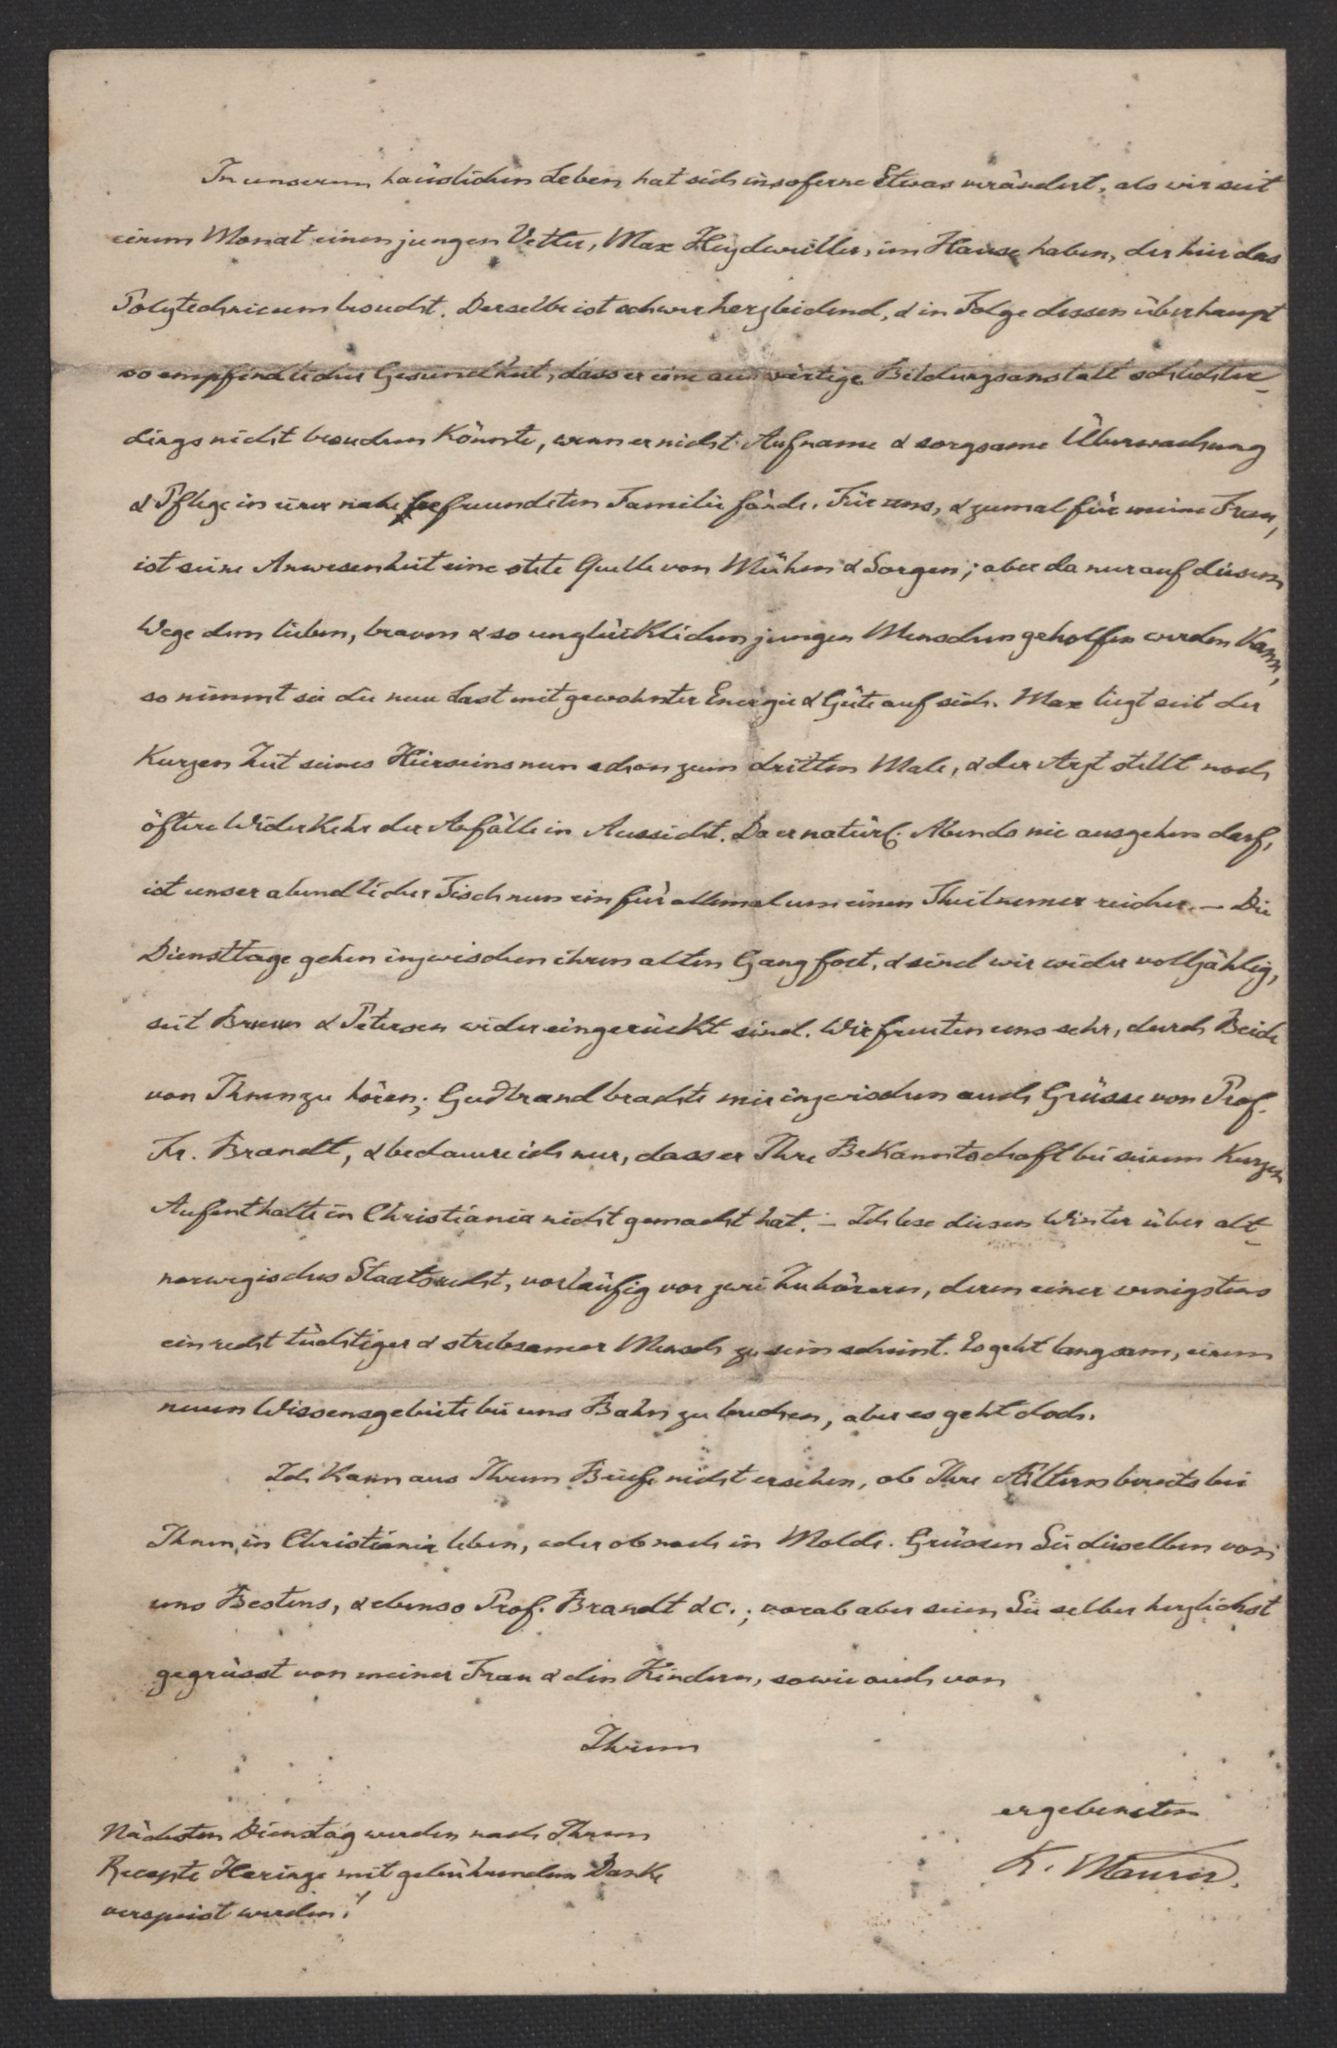 In unserem häuslichen Leben hat sich insoferne Etwas verändert, als wir seit
einem Monat einen jungen Vetter, Max Heydweiller, im Hause haben, der hier das
Polytechnicum besucht. Derselbe ist schwer herzleidend, & in Folge dessen überhaupt
so empfindlicher Gesundheit, dass er eine auswärtige Bildungsanstalt schlechter-
dings nicht besuchen könnte, wenn er nicht Aufname & sorgsame Überwachung
& Pflege in einer nahe befreundeten Familie fände. Für uns, & zumal für meine Frau,
ist seine Anwesenheit eine stete Quelle von Mühen & Sorgen; aber da nur auf diesem
Wege dem lieben, braven & so unglücklichen jungen Menschen geholfen werden kann,
so nimmt sie die neue Last mit gewohnter Energie & Güte auf sich. Max liegt seit der
kurzen Zeit seines Hierseins nun schon zum dritten Male, & der Arzt stellt noch
öftere Widerkehr der Anfälle in Aussicht. Da er natürl. Abends nie ausgehen darf,
ist unser abendlicher Tisch nun ein für allemal um einen Theilnemer reicher. – Die
Diensttage gehen inzwischen ihren alten Gang fort, & sind wir wider vollzählig,
seit Bruun & Petersen wider eingerückt sind. Wir freuten uns sehr, durch Beide
von Ihnen zu hören; Gudbrand brachte mir inzwischen auch Grüsse von Prof.
Fr. Brandt, & bedauere ich nur, dass er Ihre Bekanntschaft bei seinem kurzen
Aufenthalte in Christiania nicht gemacht hat. – Ich lese diesen Winter über alt-
norwegisches Staatsrecht, vorläufig vor zwei Zuhörern, deren einer wenigstens
ein recht tüchtiger & strebsamer Mensch zu sein scheint. Es geht langsam, einem
neuen Wissensgebiete bei uns Bahn zu brechen, aber es geht doch.
Ich kann aus Ihrem Briefe nicht ersehen, ob Ihre Ältern bereits bei
Ihnen in Christiania leben, oder ob noch in Molde. Grüssen Sie dieselben von
uns Bestens, & ebenso Prof. Brandt &c.; vorab aber seien Sie selber herzlichst
gegrüsst von meiner Frau & den Kindern, sowie auch von
Ihrem
ergebensten
K. Maurer.
Nächsten Dienstag werden nach Ihrem
Recepte Häringe mit gebührendem Danke
verspeist werden!